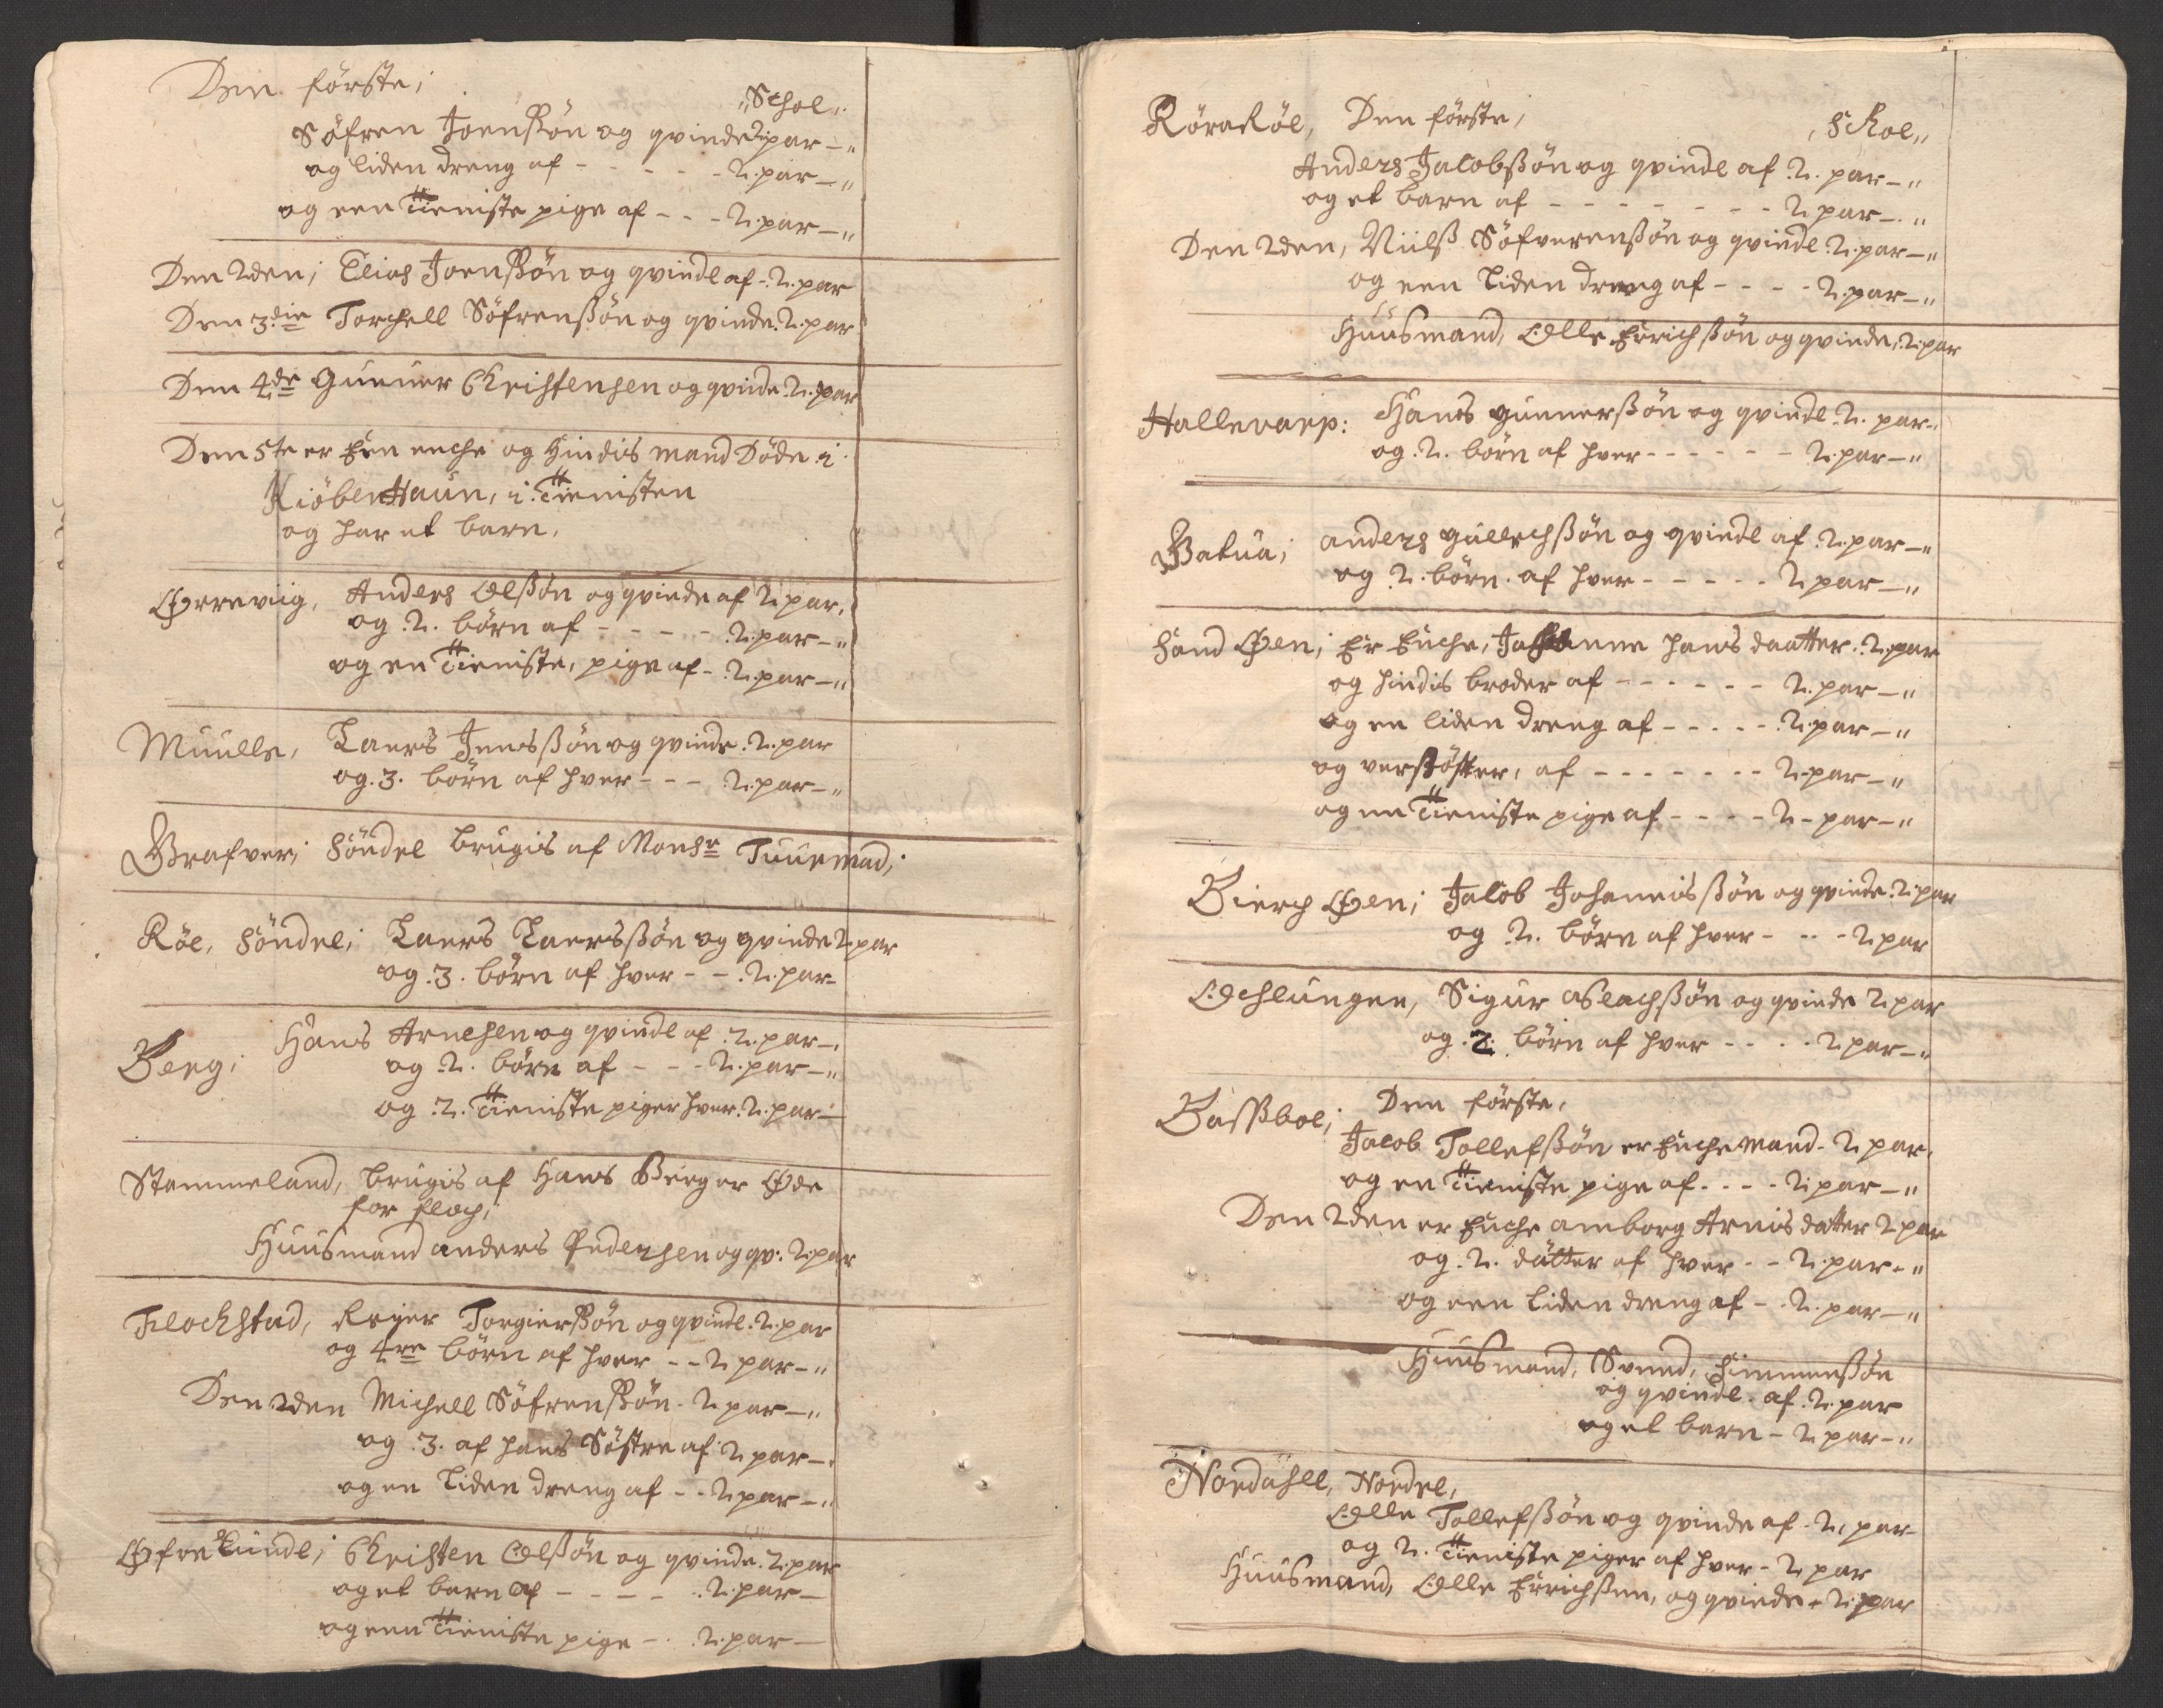 Den förste,
"Schol"
Söfren Joensßön og qvinde 2 par — "
og liden dreng af - - - - - 2. par — "
og een Tieniste pige af - - - 2. par — "
Den 2den; Elias Joensßön og qvinde af - 2. par
Den 3die Torchell Söfrensßön og qvinde. 2. par
Den 4de Gunner Christensen og qvinde. 2. par
Den 5te er Een enche og Hindis mand Döde i
KiöbenHaun, i Tienisten
og har et barn.
Ørreviig, Anders Olsßön og qvinde af 2 par,
og 2. börn af - - - - 2. par — "
og en Tieniste, pige af - 2. par — "
Muulle, Laers Jensßön og qvinde. 2. par
og. 3. börn af hver - - - 2. par — "
Grafver; Söndre brugis af Monsr Tuuemad;
Röe, Söndre; Laers Laersßön og qvinde 2 par
og. 3. börn af hver - - 2. par -
Berg; Hans Arnesen og qvinde af 2. par —
og 2. börn af - - - 2. par — "
og 2. Tieniste piger hver. 2. par —
Stammeland, brugis af Hans Berg er Øde
for floch;
Huusmand anders Pedersen og qv: 2. par
Flochstad, Reyer Torgiersßön og qvinde. 2. par
og 4re börn af hver - - 2. par — "
Den 2den Michell Söfrensßön - 2 par — "
og 3. af hans Söstre af 2 par —
og en Liden dreng af - - 2. par — "
Øfre Lunde; Christen Olsßön og qvinde. 2. par
og et barn af - - - - 2. par —
og een Tieniste pige - 2. par —
Röra Röe, Den förste,
"Skoe"
Anders Jacobsßön og qvinde af 2. par — "
og et barn af - - - - - - - 2 par — "
Den 2den, Niilß Söfverensßön og qvinde 2. par — "
og een Liden dreng af - - - - 2. par — "
Huusmand, Olle Erichsßön og qvinde, 2. par
Hallevarp: Hans Gunnersßön og qvinde 2. par —
og. 2. börn af hver - - - - - 2. par — "
Batua; anders Gullechsßön og qvinde af 2. par — "
og 2. börn af hver - - - - - 2 par — "
Sand Øen; Er Enche, Johanne Hans daatter. 2. par
og hindis broder af - - - - - - 2. par — "
og en liden dreng af - - - - - 2. par — "
og versöster, af - - - - - - - 2. par — "
og en Tieniste pige af - - - - 2. par — "
Bierch Øen; Jacob Johannisßön og qvinde. 2. par
og 2. börn af hver - - - 2 par
Ochlungen, Sigur Aslachsßön og qvinde 2 par
og. 2. börn af hver - - - - 2 par — "
Bassboe; Den förste,
Jacob Tollefsßön er Enche mand - 2 par,
og en Tieniste pige af - - - - 2. par — "
Den 2den er Enche amborg Arnis datter 2 par
og. 2. dätter af hver - - 2. par - "
og een Liden dreng af - 2. par — "
Huusmand, Svend, Simmensßön
og qvinde. af. 2. par
og et barn - 2 par — "
Nordahll, Nordre,
Olle Tollefsßön og qvinde af - 2. par -
og 2. Tieniste piger af hver - 2 par
Huusmand, Olle Erichsen, og qvinde - 2. par